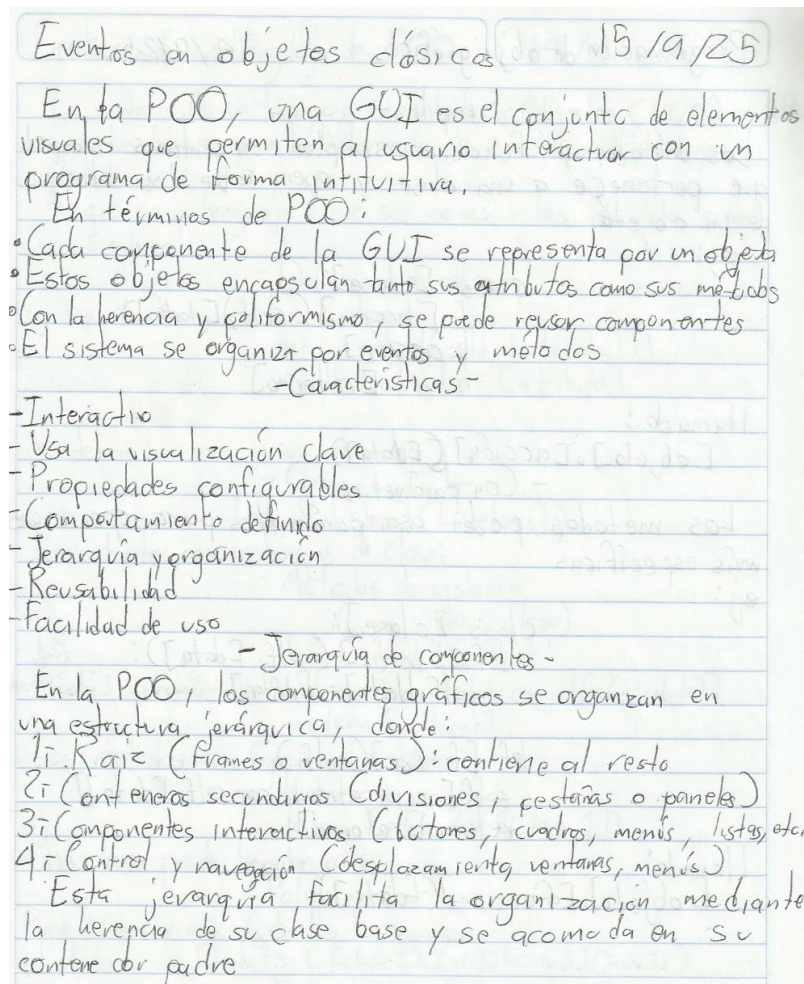 Eventos en objetos clásicos 15/9/25
En la POO, una GUI es el conjunto de elementos
visuales que permiten al usuario interactuar con un
programa de forma intituitiva.
En términos de POO:
• Cada componente de la GUI se representa por un objeto
• Estos objetos encapsulan tanto sus atributos como sus métodos
• Con la herencia y poliformismo, se puede reusar componentes
• El sistema se organiza por eventos y métodos
- Características -
- Interactivo
- Usa la visualización clave
- Propiedades configurables
- Comportamiento definido
- Jerarquía y organización
- Reusabilidad
- Facilidad de uso
- Jerarquía de componentes -
En la POO, los componentes gráficos se organizan en
una estructura jerárquica, donde:
1- Raiz (frames o ventanas): contiene al resto
2- Conteneros secundarios (divisiones, pestañas o paneles)
3- Componentes interactivos (botones, cuadros, menús, listas, etc.
4- Control y navegación (desplazamiento, ventanas, menús)
Esta jerarquía facilita la organización mediante
la herencia de su clase base y se acomoda en su
contenedor padre